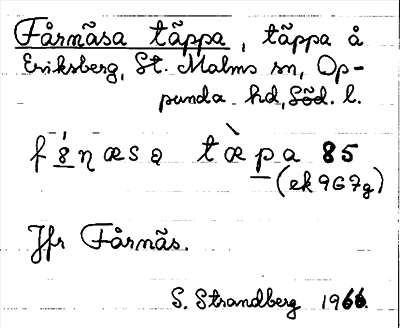 Fårnäsa täppa, täppa å
Eriksberg, St. Malms sn, Op-
punda hd, Söd. l.
85
(ek 967g)
Jfr Fårnäs.
S. Strandberg 1966.